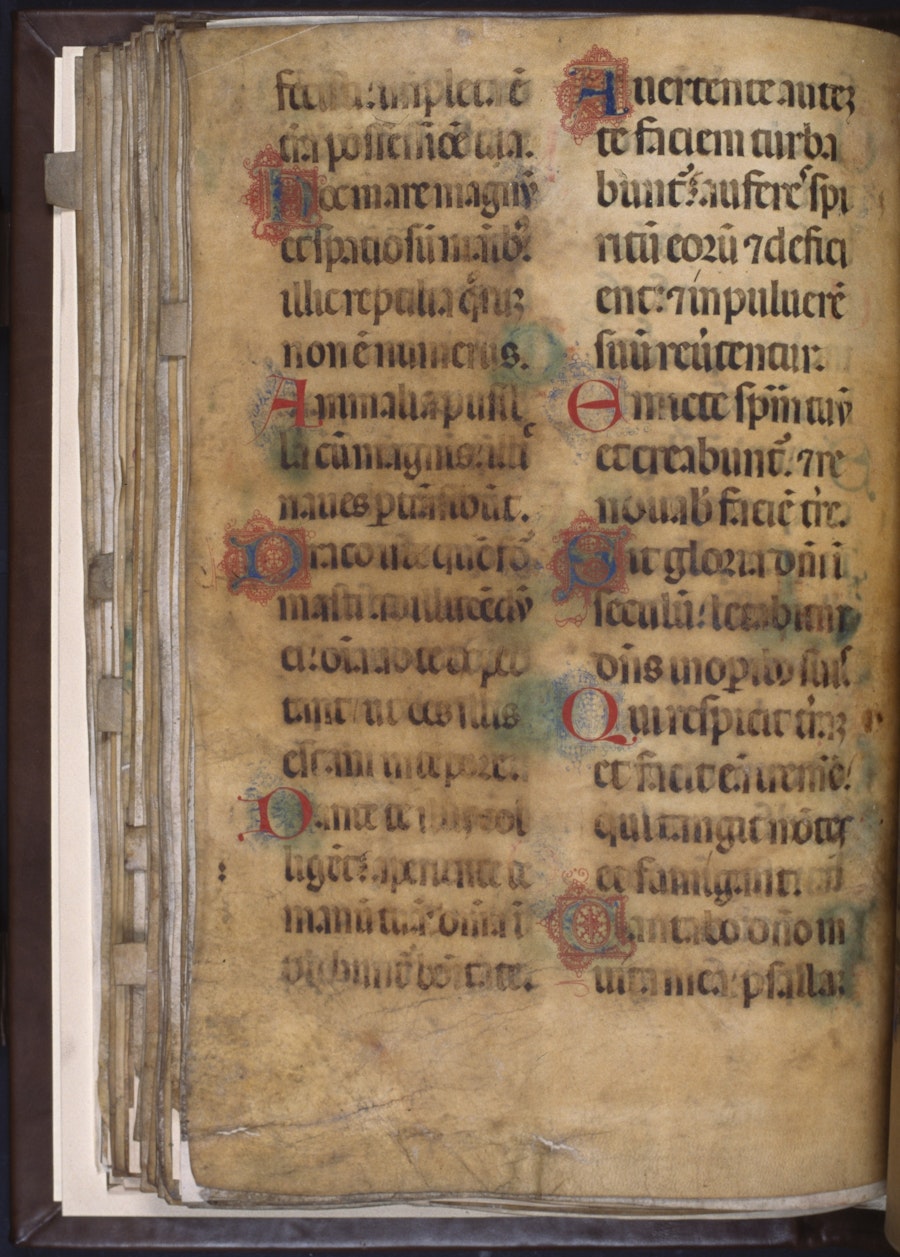 fecisti impleta ē
tra possessiōe tua.
Hoc mare magnū
et spatiosū manib⁊
illic reptilia q̄rū
non ē numerus.
Animalia pusil
la cū magnis: illic
naues ꝑtransibūt.
Draco iste quē for
masti
dant te illis col
ligēt: aperiente te
manū tuā: omnia ī
plebunt᷑ bōitate.
Auertente autē
te faciem turba
bunt᷑: auferes spi
ritū eorū ⁊ defici
ent: ⁊ in puluerē
suū reūtentur.
Emitte spm̄ tuū
et creabunt᷑. ⁊ re
nouab faciē tre.
Sit gloria dn̄i ī
seculū: letabitur
dn̄s in operib suis
Qui respicit trā
et facit eā tremē:
qui tangit mōtes
et fumigant.
Cantabo dn̄o in
uita mea: psallā